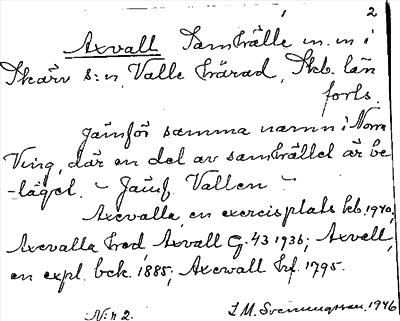 2
Axvall Samhälle m. m i
Skärv s:n, Valle härad, Skb. län
forts.
Jämför samma namn i Norra
Ving, där en del av samhället är be-
-läget. - Jämf. Vallen -
Axevalla, en exercisplats hb. 1940;
Axevalla hed, Axvall G. 43 1936; Axvell,
en expl. bck. 1885; Axewall hf. 1795.
N:r 2. J. M. Svenungsson. 1946